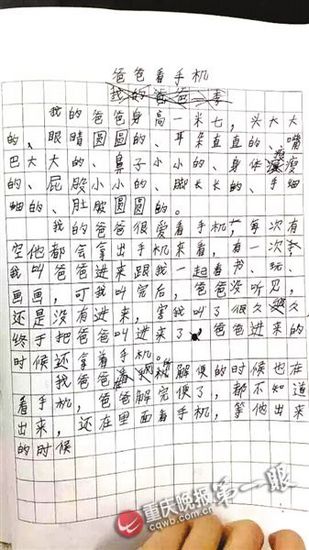 爸爸看手机
我的爸爸
我的爸爸身高一米七，头大大
的、眼睛圆圆的、耳朵直直的、嘴
巴大大的、鼻子小小的、身体瘦瘦
的、屁股小小的、脚长长的、手细
细的、肚脐圆圆的。
我的爸爸很爱看手机，每次有
空他都会拿出手机来看，有一次
我叫爸爸进来跟我一起看书、玩、
画画，可我叫完后，爸爸没听见，
还是没有进来，害我叫了很久
终于把爸爸叫进来了 爸爸进来的
时候还拿着手机。
我爸爸 解便的时候也在
看手机，爸爸解完便了，都不知道
出来，还在里面看手机，等他出来
的时候
重庆晚报第一眼
www.cqwb.com.cn